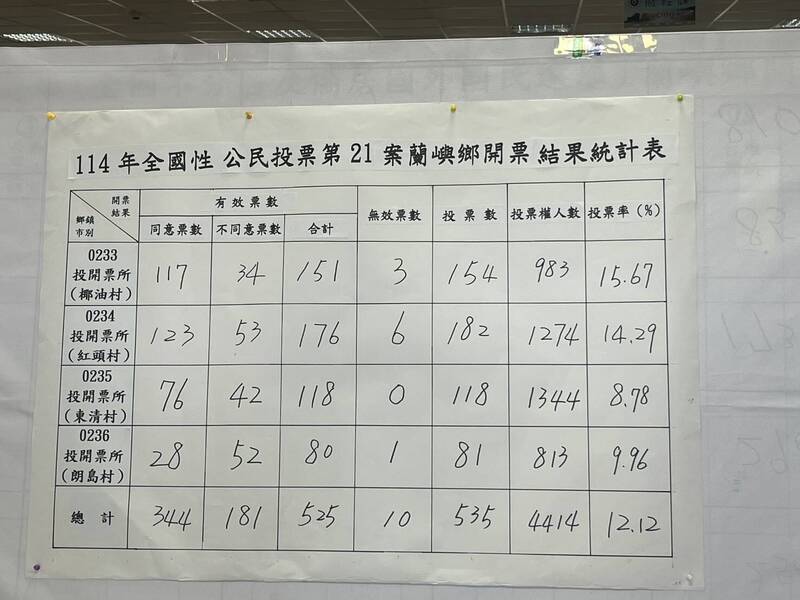 114年全國性 公民投票第21案蘭嶼鄉開票結果統計表
開票結果 鄉鎮市別 有效票數 無效票數 投票數 投票權人數 投票率(%)
同意票數 不同意票數 合計
0233
投開票所 117 34 151 3 154 983 15.67
(椰油村)
0234
投開票所 123 53 176 6 182 1274 14.29
(紅頭村)
0235
投開票所 76 42 118 0 118 1344 8.78
(東清村)
0236
投開票所 28 52 80 1 81 813 9.96
(朗島村)
總計 344 181 525 10 535 4414 12.12